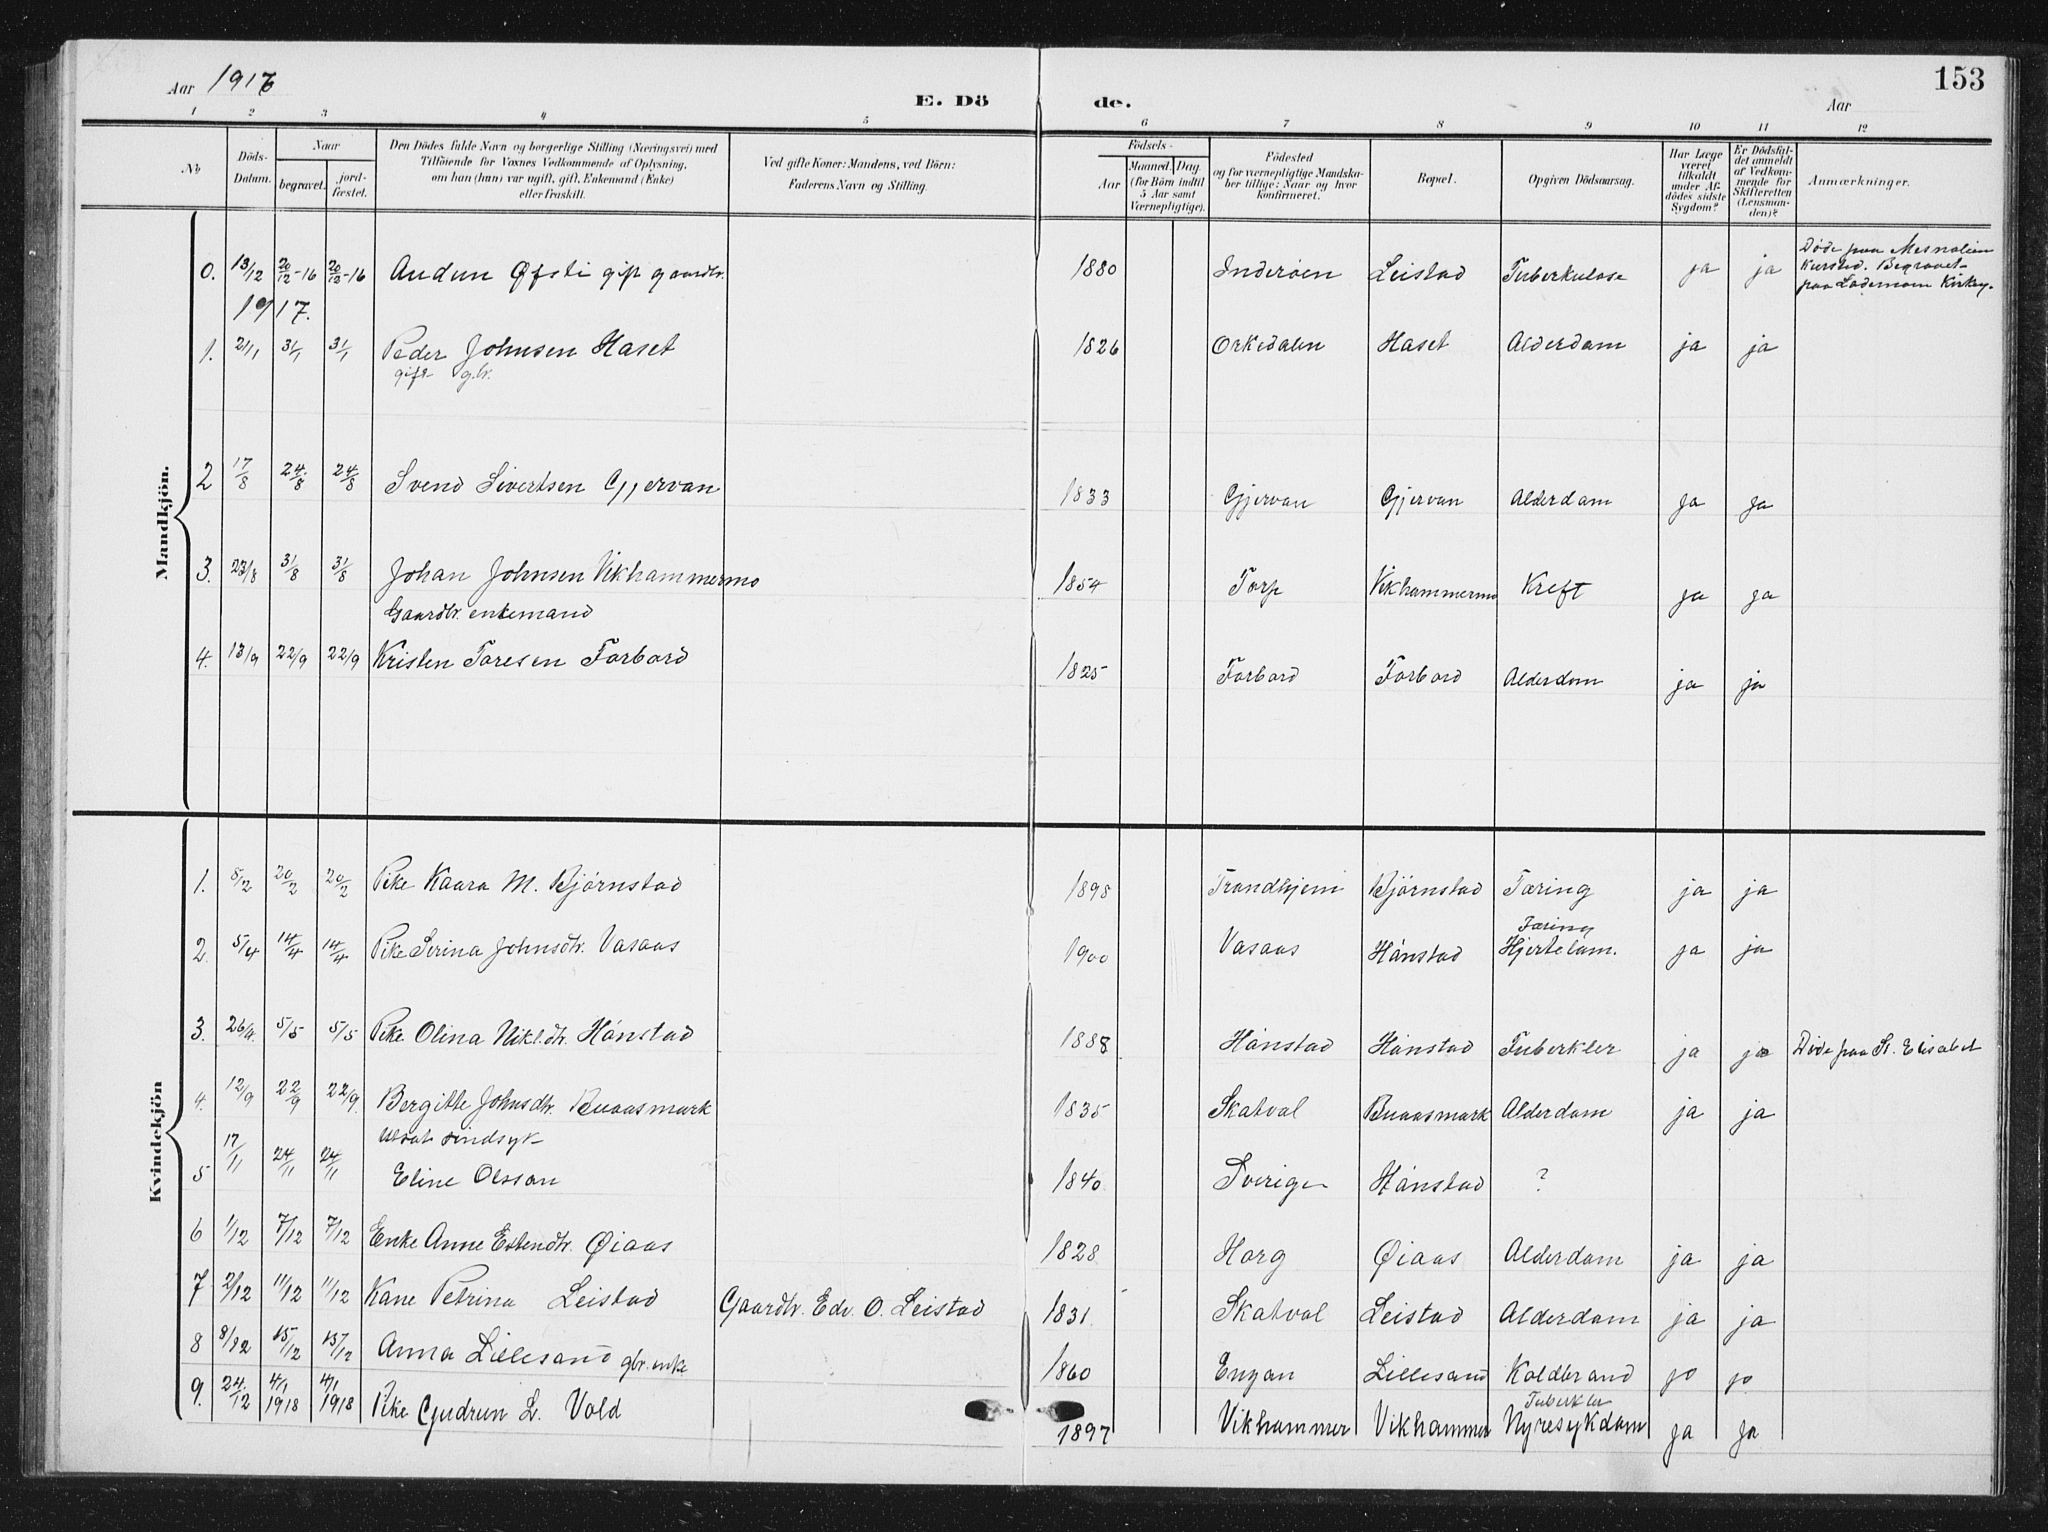 Aar 1916
E. Dö de.
Aar
153
1 2 3 4 5 6 7 8 9 10 11 12
No
Döds-Datum.
Naar
begravet.
jord-festet.
Den Dödes fulde Navn og borgerlige Stilling (Næringsvei) med
Tilföiende for Voxnes Vedkommende af Oplysning,
om han (hun) var ugift, gift, Enkemand (Enke)
eller fraskilt.
Ved gifte Koner: Mandens, ved Börn:
Faderens Navn og Stilling.
Födsels-
Aar
Maaned. Dag.
(for Börn indtil
5 Aar samt
Værnepligtige).
Födested
og for værnepligtige Mandska-
ber tillige: Naar og hvor
Konfirmeret.
Bopæl.
Opgiven Dödsaarsag.
Har Læge
været
tilkaldt
under Af-
dödes sidste
Sygdom?
Er Dödsfal-
det anmeldt
af Vedkom-
mende for
Skifteretten
(Lensman-
den)?
Anmærkninger.
Mandkjön.
0. 13/12 20/12-16 20/12-16 Audun Øfsti gift gaardbr. 1880 Inderøen Leistad Tuberkulose ja ja Døde paa Mesnalien
Kursted. Begravet
paa Lademoen Kirkeg.
1917.
1. 21/1 31/1 31/1 Peder Johnsen Haset 1826 Orkedalen Haset Alderdom ja ja
gift g.br.
2 17/8 24/8 24/8 Svend Sivertsen Gjervan 1833 Gjervan Gjervan Alderdom ja ja
3. 23/8 31/8 31/8 Johan Johnsen Vikhammermo 1854 Torp Vikhammermo Kreft ja ja
Gaardbr. enkemand
4. 13/9 22/9 22/9 Kristen Toresen Forbord 1825 Forbord Forbord Alderdom ja ja
Kvindekjön
1. 8/2 20/2 20/2 Pike Kaara M. Bjørnstad 1898 Trondhjem Bjørnstad Tæring ja ja
2. 5/4 14/4 14/4 Pike Serina Johnsdtr. Vasaas 1900 Vasaas Hånstad Tæring
Hjertelam. ja ja
3. 26/4 5/5 5/5 Pike Olina Nikl.dtr. Hånstad 1888 Hånstad Hånstad Tuberkler ja ja Døde paa St. Elisabet
4. 12/9 22/9 22/9. Bergitte Johnsdtr. Buaasmark 1835 Skatval Buaasmark Alderdom ja ja
sindsyk
5 17/11 24/11 24/11 Eline Olsson 1840. Sverige Hånstad ?
6 1/12 7/12 7/12 Enke Anne Estendtr. Øiaas 1828 Horg Øiaas Alderdom ja ja
7 2/12 11/12 11/12 Kone Petrina Leistad Gaardbr. Edv. O. Leistad 1831. Skatval Leistad Alderdom ja ja
8 8/12 15/12 15/12 Anna Lillesand gbr. enke 1860 Engan Lillesand Koldbrand jo jo
9. 24/12 4/1 1918 4/1 1918 Pike Gudrun L. Vold 1897 Vikhammer Vikhammer Tuberkler
Nyresykdom ja ja